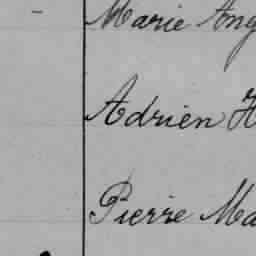 Marie Ang
Adrien H
Pierre Ma